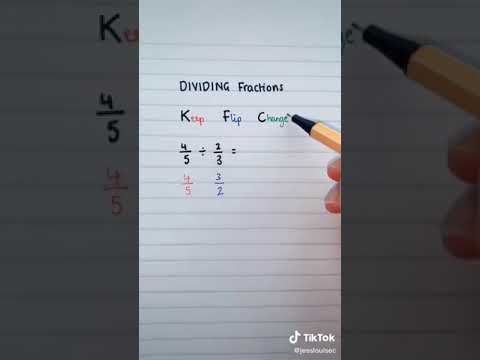 DIVIDING Fractions
Keep Flip Change
4/5 ÷ 2/3 =
4/5 3/2
TikTok
@jesslouisec